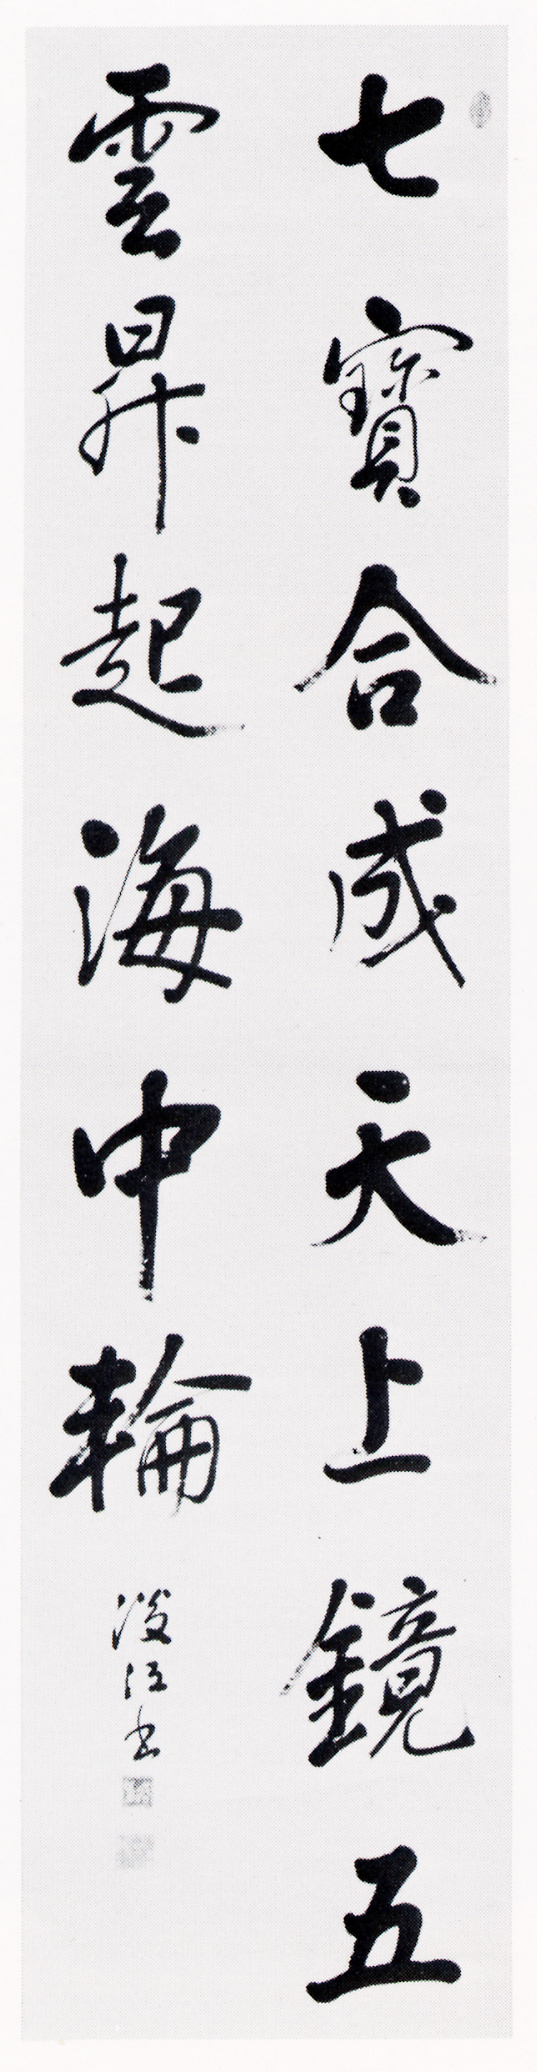 七寶合成天上鏡五
雲昇起海中輪
浚江書